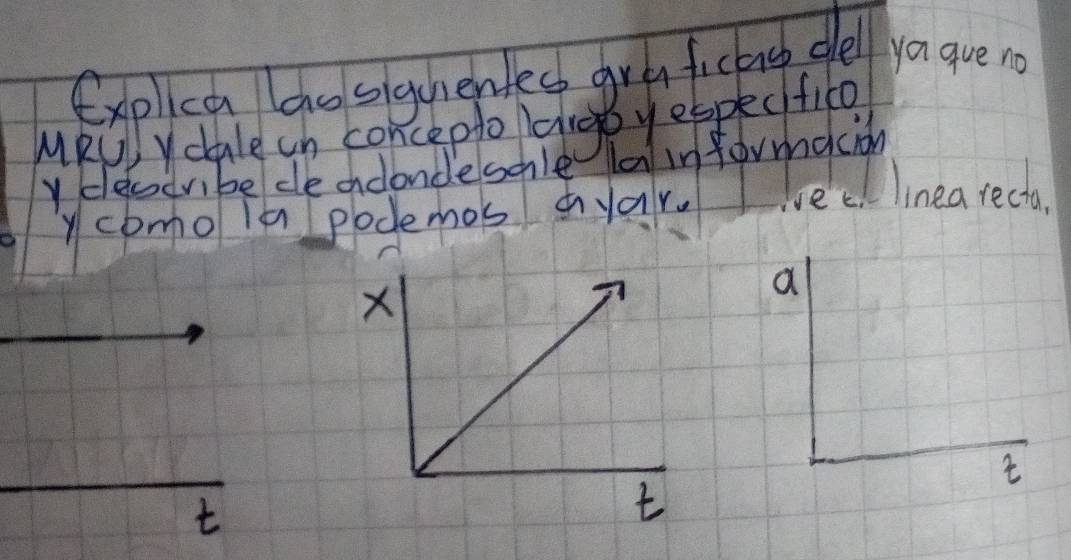 Explica las siguientes graficas del ya que no
MRU, y dale un concepto largo y especifico
y describe de adonde sale la información
y como la podemos ayar. linea recta.
x
a
t
t
t